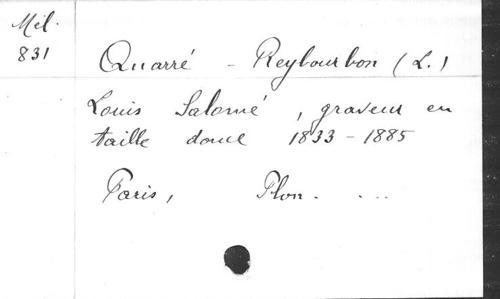 Mél.
831
Quarré - Reybourbon (L.)
Louis Salomé, graveur en
taille douce 1833-1885
Paris, Plon. ...